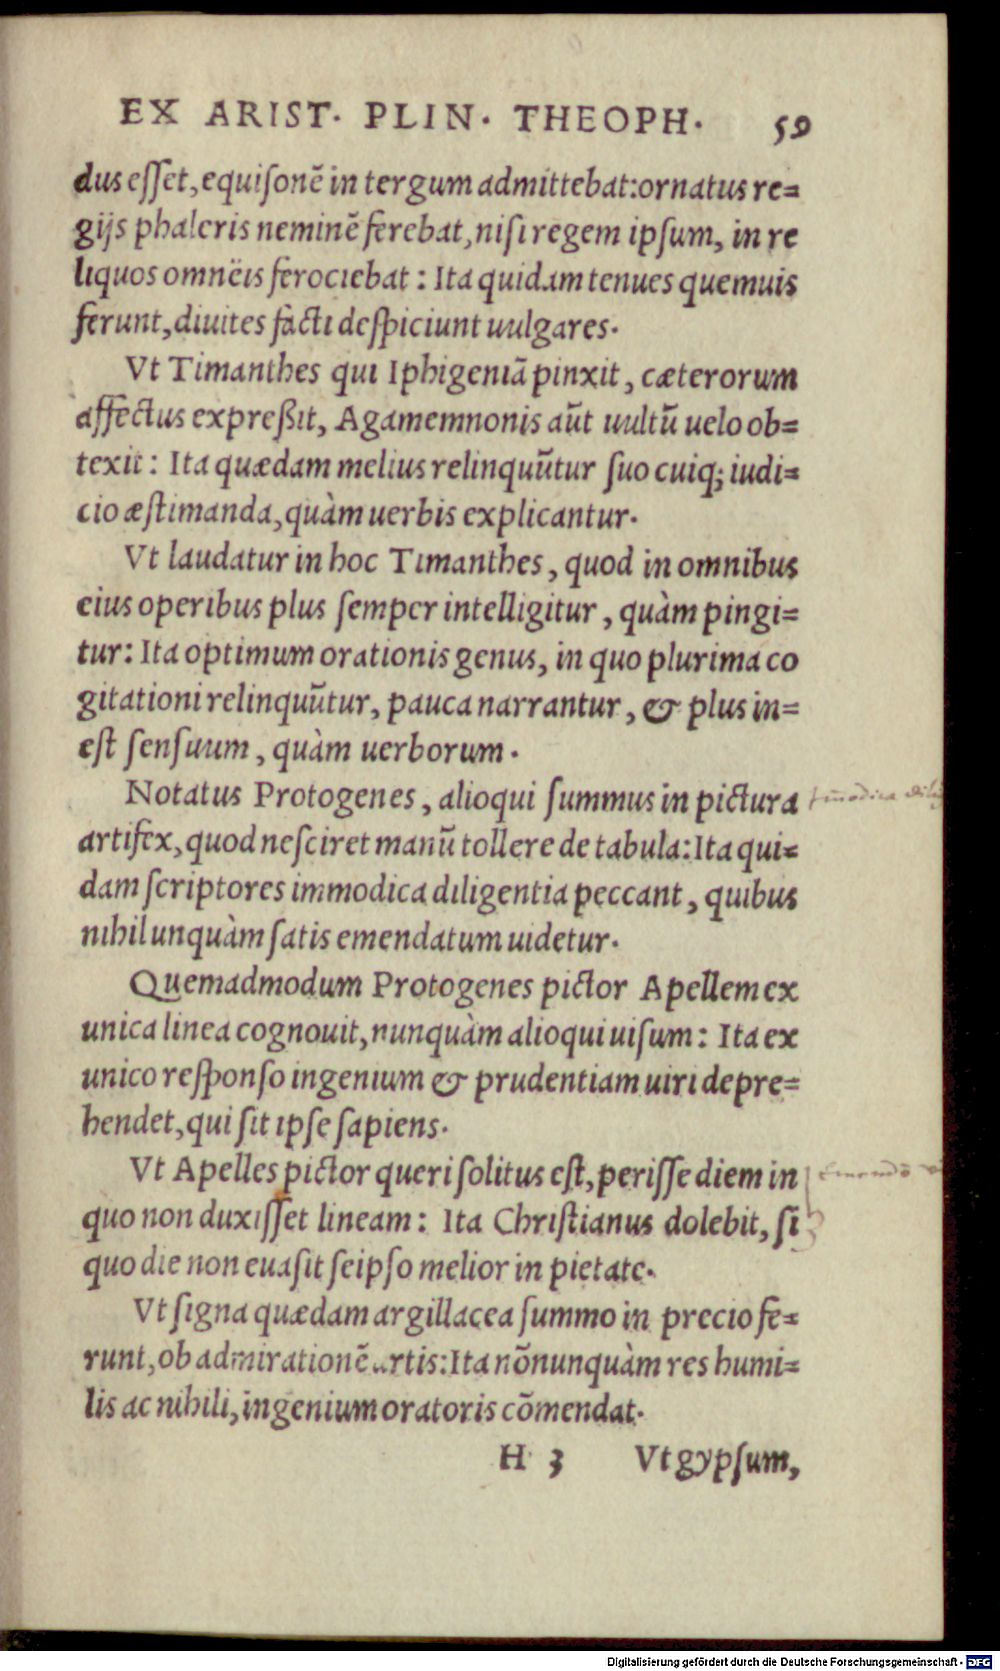 EX ARIST. PLIN. THEOPH. 59
dus esset, equisonē in tergum admittebat: ornatus re=
gijs phaleris neminē ferebat, nisi regem ipsum, in re
liquos omnēis ferociebat : Ita quidam tenues quemuis
ferunt, diuites facti despiciunt uulgares.
Vt Timanthes qui Iphigeniā pinxit, cæterorum
affectus expreßit, Agamemnonis aūt uultū uelo ob=
texit : Ita quædam melius relinquūtur suo cuiq; iudi=
cio æstimanda, quàm uerbis explicantur.
Vt laudatur in hoc Timanthes, quod in omnibus
eius operibus plus semper intelligitur, quàm pingi=
tur: Ita optimum orationis genus, in quo plurima co
gitationi relinquūtur, pauca narrantur, & plus in=
est sensuum, quàm uerborum.
Notatus Protogenes, alioqui summus in pictura
artifex, quod nesciret manū tollere de tabula: Ita qui=
dam scriptores immodica diligentia peccant, quibus
nihil unquàm satis emendatum uidetur.
Quemadmodum Protogenes pictor Apellem ex
unica linea cognouit, nunquàm alioqui uisum: Ita ex
unico responso ingenium & prudentiam uiri depre=
hendet, qui sit ipse sapiens.
Vt Apelles pictor queri solitus est, perisse diem in
quo non duxisset lineam: Ita Christianus dolebit, si
quo die non euasit seipso melior in pietate.
Vt signa quædam argillacea summo in precio fe=
runt, ob admirationē artis: Ita nōnunquàm res humi=
lis ac nihili, ingenium oratoris cōmendat.
H 3 Vt gypsum,
Digitalisierung gefördert durch die Deutsche Forschungsgemeinschaft - DFG